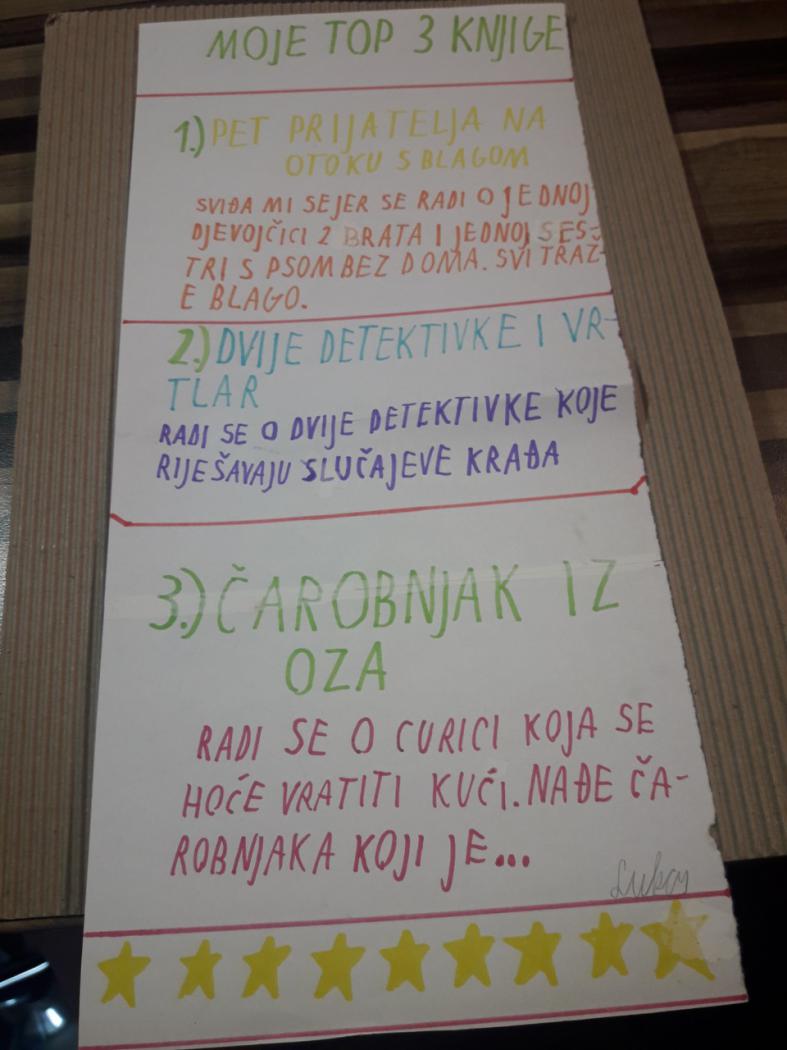 MOJE TOP 3 KNJIGE
1.) PET PRIJATELJA NA
OTOKU S BLAGOM
SVIĐA MI SE JER SE RADI O JEDNOJ
DJEVOJČICI 2 BRATA I JEDNOJ SES-
TRI S PSOM BEZ DOMA. SVI TRAŽ-
E BLAGO.
2.) DVIJE DETEKTIVKE I VR-
TLAR
RADI SE O DVIJE DETEKTIVKE KOJE
RIJEŠAVAJU SLUČAJEVE KRAĐA
3.) ČAROBNJAK IZ
OZA
RADI SE O CURICI KOJA SE
HOĆE VRATITI KUĆI. NAĐE ČA-
ROBNJAKA KOJI JE...